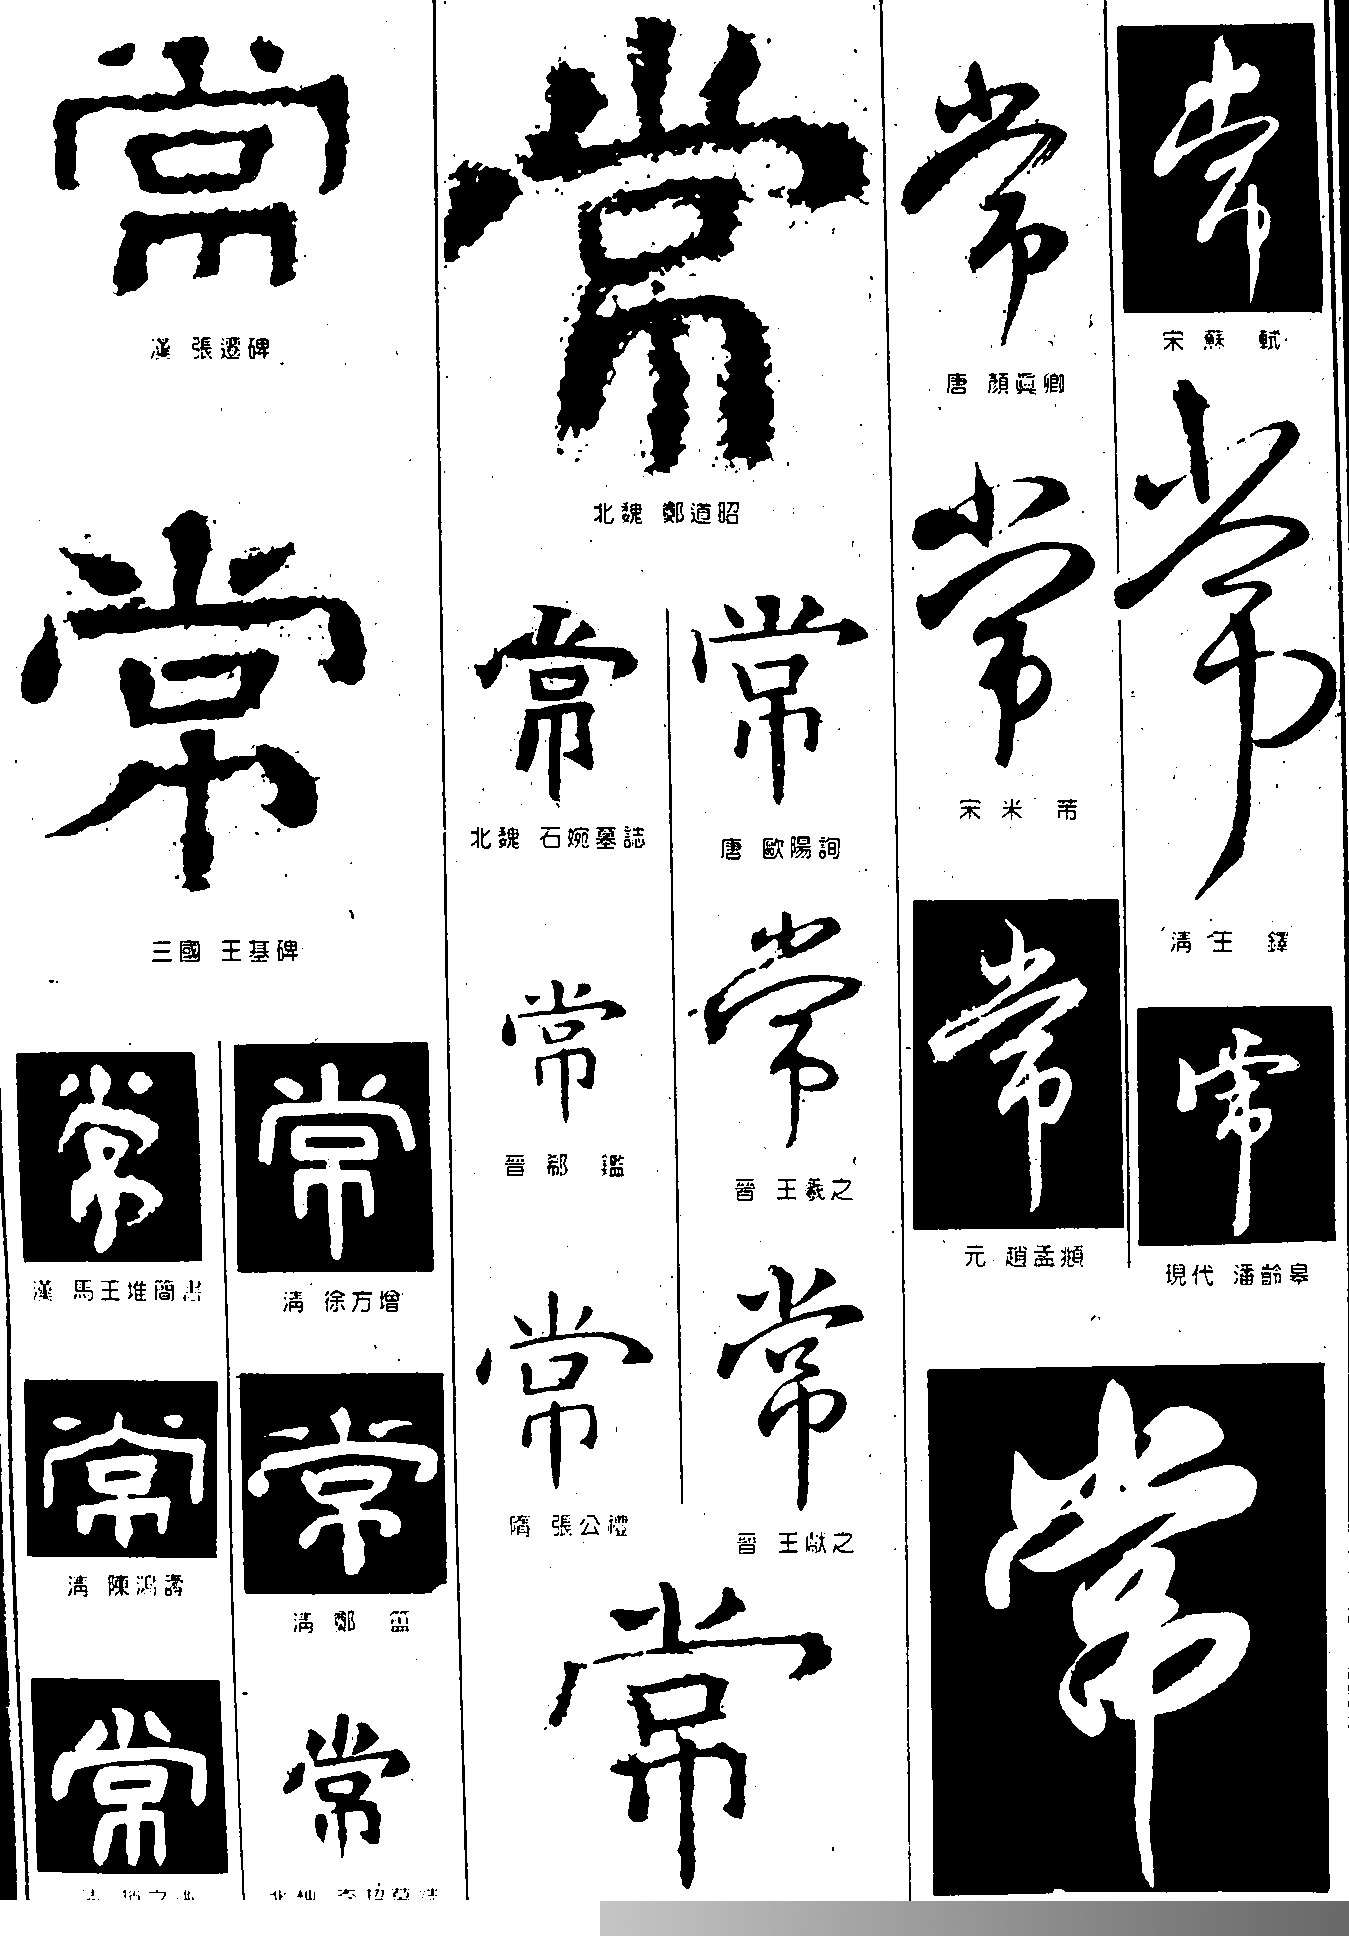 常
漢 張遷碑
常
三國 王基碑
常
漢 馬王堆簡書
常
清 徐方增
常
清 陳鴻壽
常
清 鄭簠
常
常
常
北魏 鄭道昭
常
北魏 石婉墓誌
常
唐 歐陽詢
常
晉 郗鑑
常
晉 王羲之
常
隋 張公禮
常
晉 王獻之
常
常
唐 顏眞卿
常
宋 蘇軾
常
宋 米芾
常
清 王鐸
常
元 趙孟頫
常
現代 潘齡皋
常